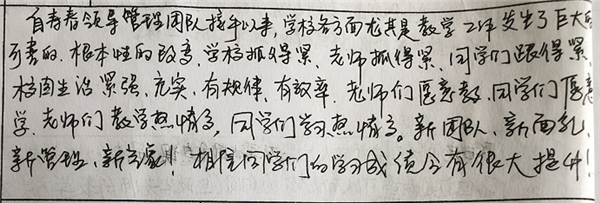 自寿春领导管理团队接手以来,学校各方面尤其是教学工作发生了巨大的
可喜的、根本性的改变,学校抓得紧、老师抓得紧、同学们跟得紧,
校园生活紧张、充实、有规律、有效率。老师们愿意教,同学们愿意
学,老师们教学热情高,同学们学习热情高。新团队、新面孔、
新管理、新气象!相信同学们的学习成绩会有很大提升!